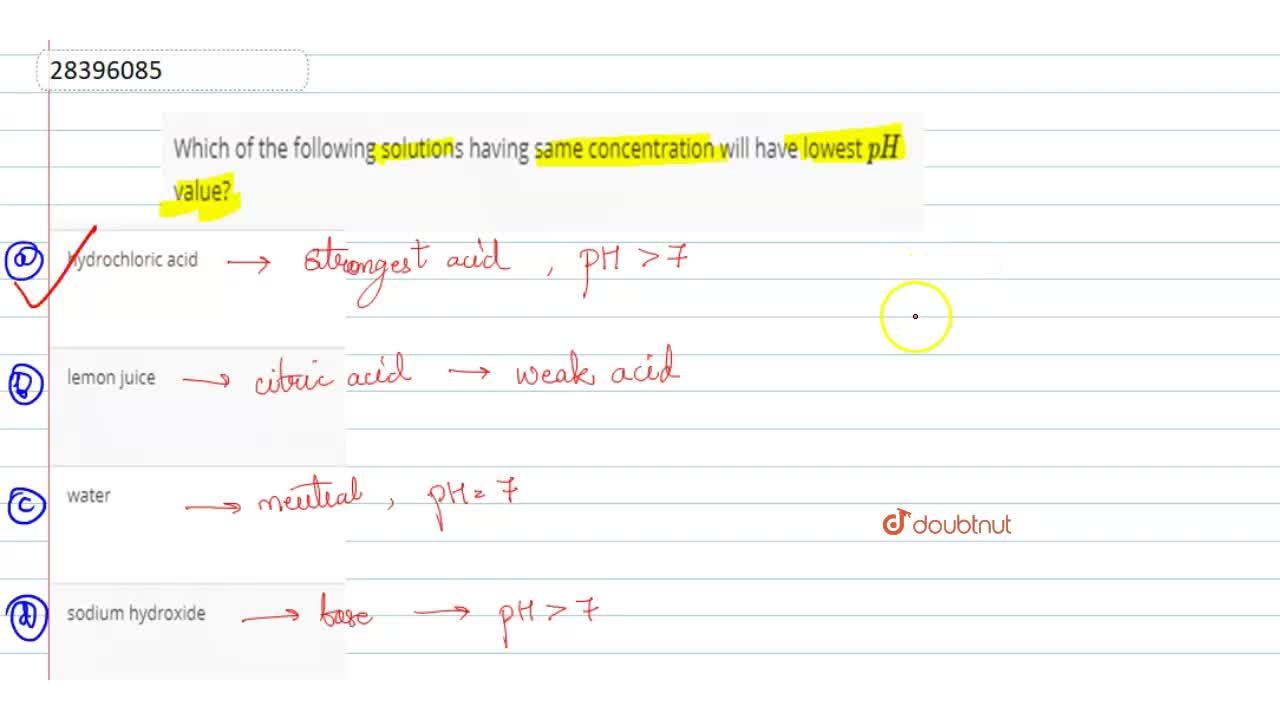 28396085
Which of the following solutions having same concentration will have lowest pH
value?
a hydrochloric acid → strongest acid , pH > 7
b lemon juice → citric acid → weak acid
c water → neutral , pH = 7
d sodium hydroxide → base → pH > 7
doubtnut